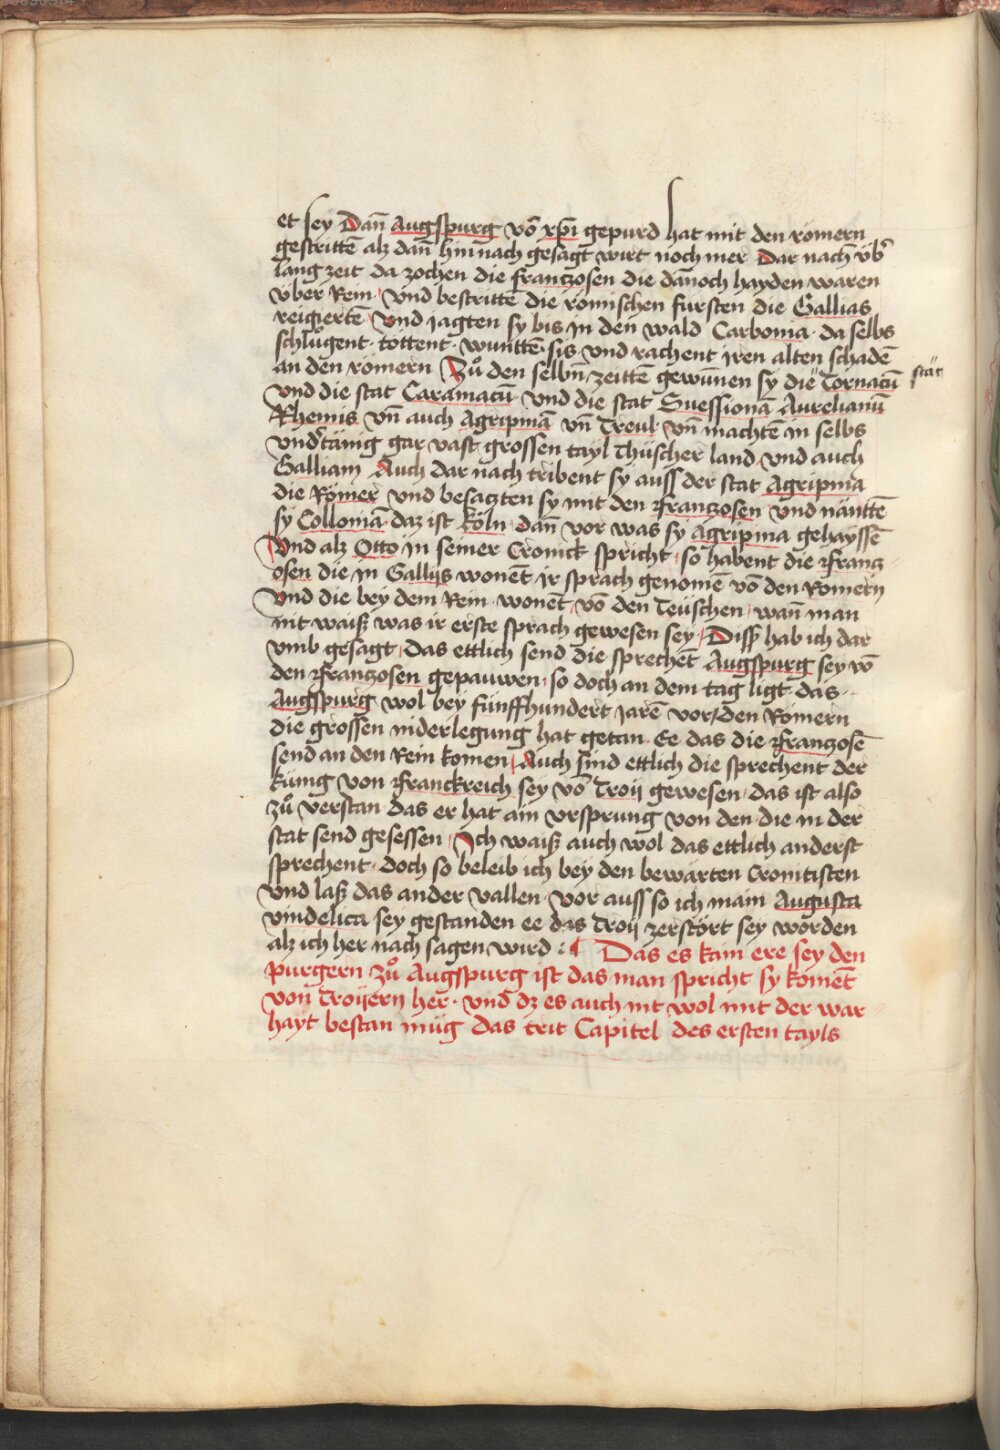 et sey Dan̄ Augspurg vō xp̄i gepurd hat mit den römern
gestrittē alz dan̄ hin nach gesagt wirt noch mer Dar nach v̈b'
lang zeit da zochen die frantzosen die dānoch hayden waren
v̈ber Rein · Vnd bestrittē die römischen fursten die Gallias
reigiertē Vnd jagten sy bis in den wald Carbonia · da selbs
schlůgent · tottent · wunttē sis · vnd rachent iren alten schadē
an den römern Zů den selbn̄ zeittē gewūnen sy die " Tornacū
stat"
vnd die stat Caramacū · vnd die stat Suessionā Aurelianū
Rhemis vn̄ auch Agripinā vn̄ Treul · vn̄ machtē in selbs
vnd'tänig gar vast grossen tayl Thüscher land vnd auch
Galliam Auch dar nach tribent sy auss der stat Agripina
die Römer vnd besaczten sy mit den Franczosen vnd näntē
sy Colloniā · daz ist Köln · dan̄ vor was sy Agripina gehayssē
Vnd alz Otto in seiner Cronick spricht · so habent die Francz
osen die in Gallijs wonēt ir sprach genomē vō den Romern
Vnd die bey dem Rein · wonēt · vō den Teüschen · wan̄ man
nit waiß was ir erste sprach gewesen sey · Diss hab ich dar
vmb gesagt · das ettlich send die sprechēt Augspurg sey vō
den Franczosen gepauwen · so doch an dem tag ligt das
Augspurg wol bey fünffhundert jarē vor den Römern
die grossen niderlegung hat getan · Ee das die Franczosē
send an den Rein komen · Auch sind ettlich die sprechent der
Küng von Franckreich sey vō Troij gewesen · das ist also
zů verstan das er hat ain vrsprung von den · die in der
stat send gesessen · Ich waiß auch wol das ettlich anderst
sprechent · doch so beleib ich bey den bewärten Cronitisten
vnd laß das ander vallen · vor auss so ich main Augusta
vindelica sey gestanden ee das Troij zerstört sey worden
alz ich her nach sagen wird : ¶ Das es kain ere sey den
purgern zů Augspurg ist das man spricht sy komēt
von Troijern her · vnd dz es auch nit wol mit der war
hayt bestan müg das trit Capitel des ersten tayls